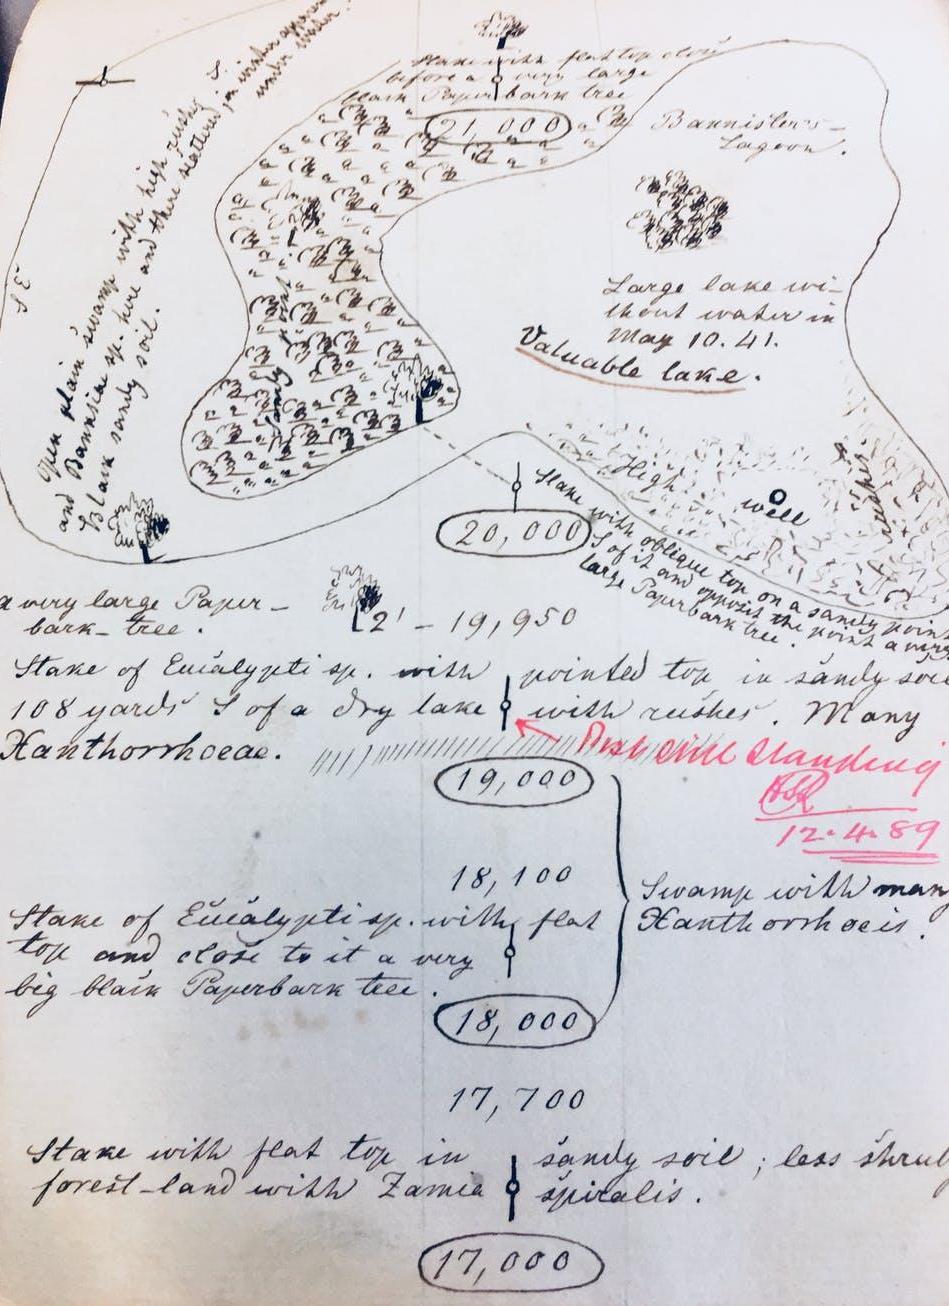 Stake with flat top close
before a very large
black Paperbark tree
21,000
Bannister's
Lagoon.
S.
Open plain swamp with high rushes
and Banksia sp. here and there scattered, in winter
under water.
Black sandy soil.
S E
sandy point
Large lake wi-
thout water in
May 10. 41.
Valuable lake.
High
well
rushes
20,000
Stake with oblique top on a sandy point
S of it and opposit the point a very
large Paperbark tree.
a very large Paper-
bark-tree.
2' - 19,950
Stake of Eucalypti sp. with pointed top in sandy soil
108 yards S of a dry lake with rushes. Many
Xanthorrhoeae.
Post still standing
12.4.89
19,000
18,100
Swamp with many
Xanthorrhoeis.
Stake of Eucalypti sp. with flat
top and close to it a very
big black Paperbark tree.
18,000
17,700
Stake with flat top in sandy soil; less shrub
forest-land with Zamia spiralis.
17,000